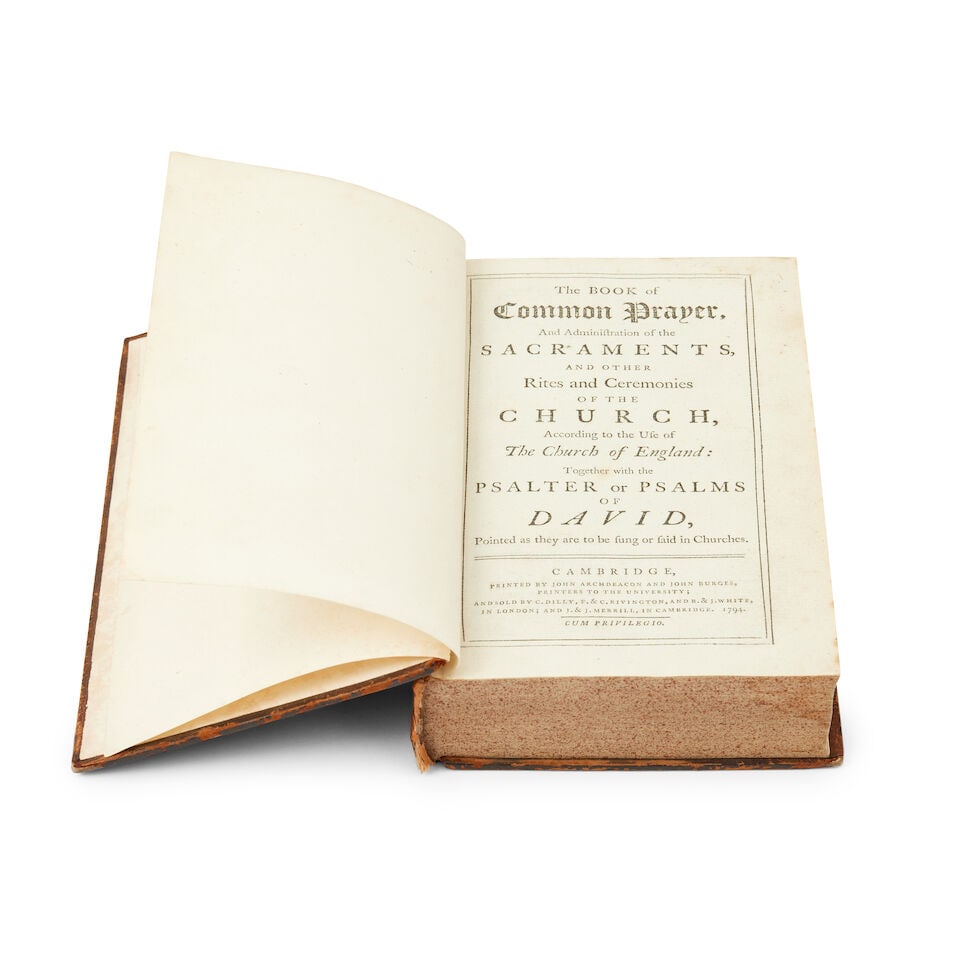 The BOOK of
Common Prayer,
And Adminiſtration of the
SACRAMENTS,
AND OTHER
Rites and Ceremonies
OF THE
CHURCH,
According to the Uſe of
The Church of England:
Together with the
PSALTER or PSALMS
OF
DAVID,
Pointed as they are to be ſung or ſaid in Churches.
CAMBRIDGE,
PRINTED BY JOHN ARCHDEACON AND JOHN BURGES,
PRINTERS TO THE UNIVERSITY;
AND SOLD BY C. DILLY, F. & C. RIVINGTON, AND B. & J. WHITE,
IN LONDON; AND J. & J. MERRILL, IN CAMBRIDGE. 1794.
CUM PRIVILEGIO.